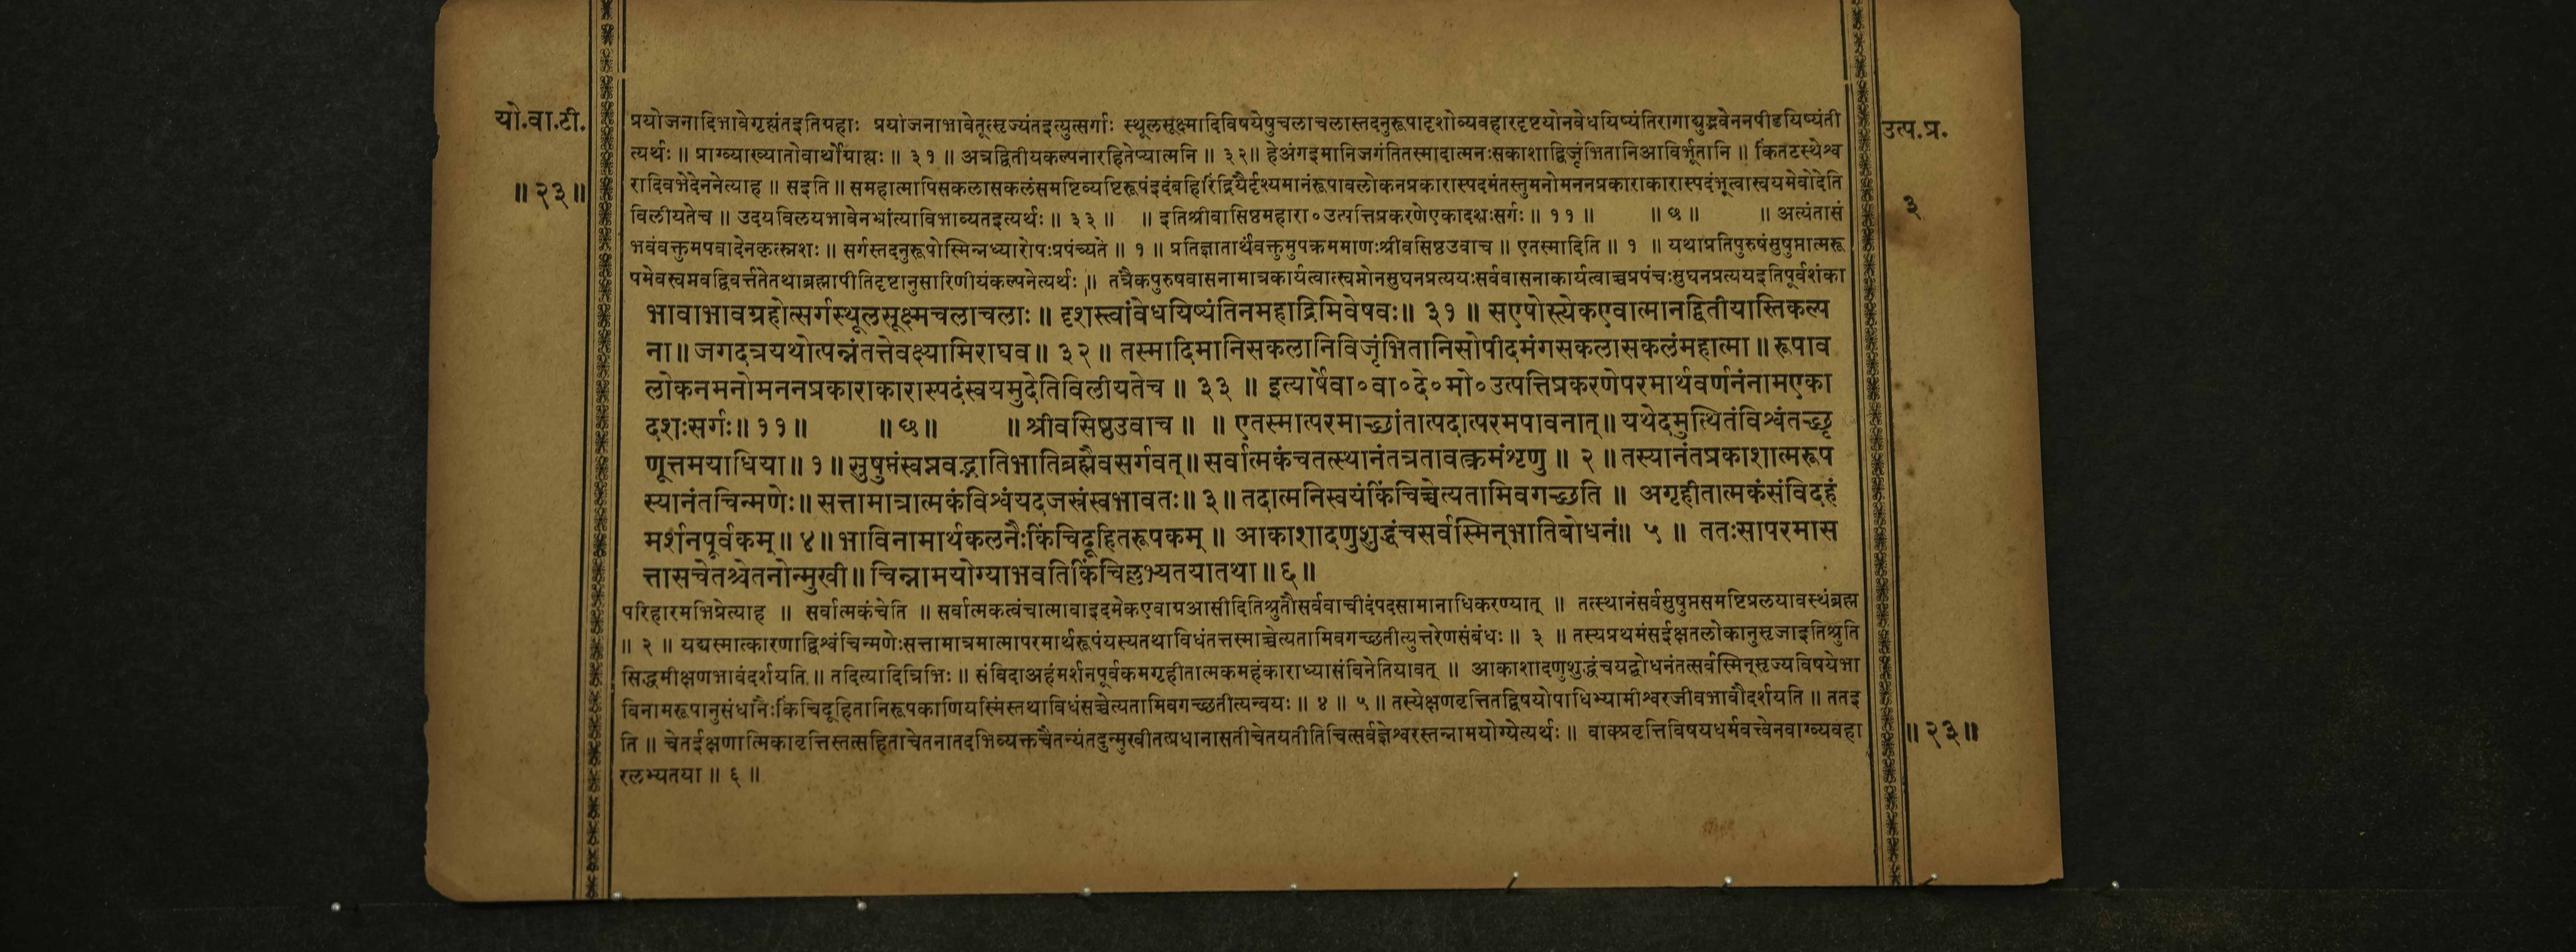 यो.वा.टी.
॥२३॥
उत्प.प्र.
३
प्रयोजनादिभावेगृह्यंतइतिग्रहाः प्रयोजनाभावेतूत्सृज्यंतइत्युत्सर्गाः स्थूलसूक्ष्मादिविषयेषुचलाचलास्तदनुरूपादृशोव्यवहारदृष्टयोनवेधयिष्यंतिरागाद्युद्भवेननपीडयिष्यंती
त्यर्थः ॥ प्राग्व्याख्यातोवार्थोग्राह्यः ॥ ३१ ॥ अत्रद्वितीयकल्पनारहितेप्यात्मनि ॥ ३२॥ हेअंगइमानिजगंतितस्मादात्मनःसकाशाद्विजृंभितानिआविर्भूतानि ॥ किंतटस्थेश्व
रादिवभेदेननेत्याह ॥ सइति ॥ समहात्मापिसकलासकलंसमष्टिव्यष्टिरूपंइदंबहिरिंद्रियैर्दृश्यमानंरूपावलोकनप्रकारास्पदमंतस्तुमनोमननप्रकाराकारास्पदंभूत्वास्वयमेवोदेति
विलीयतेच ॥ उदयविलयभावेनभ्रांत्याविभाव्यतइत्यर्थः ॥ ३३ ॥ ॥ इतिश्रीवासिष्ठमहारा०उत्पत्तिप्रकरणेएकादशःसर्गः ॥ ११ ॥ ॥ ७ ॥ ॥ अत्यंतासं
भवंवक्तुमपवादेनकृत्स्नशः ॥ सर्गस्तदनुरूपोस्मिन्नध्यारोपःप्रपंच्यते ॥ १ ॥ प्रतिज्ञातार्थंवक्तुमुपक्रममाणःश्रीवसिष्ठउवाच ॥ एतस्मादिति ॥ १ ॥ यथाप्रतिपुरुषंसुषुप्तात्मरू
पमेवस्वप्नवद्विवर्त्ततेतथाब्रह्मापीतिदृष्टानुसारिणीयंकल्पनेत्यर्थः ॥ तत्रैकपुरुषवासनामात्रकार्यत्वात्स्वप्नोनसुघनप्रत्ययःसर्ववासनाकार्यत्वाच्चप्रपंचःसुघनप्रत्ययइतिपूर्वशंका
भावाभावग्रहोत्सर्गस्थूलसूक्ष्मचलाचलाः ॥ दृशस्त्वांवेधयिष्यंतिनमहाद्रिमिवेषवः॥ ३१ ॥ सएषोस्त्येकएवात्मानद्वितीयास्तिकल्प
ना॥ जगदत्रयथोत्पन्नंतत्तेवक्ष्यामिराघव॥ ३२ ॥ तस्मादिमानिसकलानिविजृंभितानिसोपीदमंगसकलासकलंमहात्मा ॥ रूपाव
लोकनमनोमननप्रकाराकारास्पदंस्वयमुदेतिविलीयतेच ॥ ३३ ॥ इत्यार्षेवा०वा०दे०मो०उत्पत्तिप्रकरणेपरमार्थवर्णनंनामएका
दशःसर्गः॥ ११॥ ॥ ७॥ ॥ श्रीवसिष्ठउवाच ॥ ॥ एतस्मात्परमाच्छांतात्पदात्परमपावनात्॥ यथेदमुत्थितंविश्वंतच्छृ
णूत्तमयाधिया॥ १॥ सुषुप्तंस्वप्नवद्भातिभातिब्रह्मैवसर्गवत्॥ सर्वात्मकंचतत्स्थानंतत्रतावत्क्रमंशृणु ॥ २ ॥ तस्यानंतप्रकाशात्मरूप
स्यानंतचिन्मणेः॥ सत्तामात्रात्मकंविश्वंयदजस्रंस्वभावतः॥ ३॥ तदात्मनिस्वयंकिंचिच्चेत्यतामिवगच्छति ॥ अगृहीतात्मकंसंविदहं
मर्शनपूर्वकम्॥ ४॥ भाविनामार्थकलनैःकिंचिदूहितरूपकम् ॥ आकाशादणुशुद्धंचसर्वस्मिन्भातिबोधनं॥ ५ ॥ ततःसापरमास
त्तासचेतश्चेतनोन्मुखी॥ चिन्नामयोग्याभवतिकिंचिल्लभ्यतयातथा॥ ६॥
परिहारमभिप्रेत्याह ॥ सर्वात्मकंचेति ॥ सर्वात्मकत्वंचात्मावाइदमेकएवाग्रआसीदितिश्रुतौसर्ववाचीदंपदसामानाधिकरण्यात् ॥ तत्स्थानंसर्वसुषुप्तसमष्टिप्रलयावस्थंब्रह्म
॥ २ ॥ यद्यस्मात्कारणाद्विश्वंचिन्मणेःसत्तामात्रमात्मापरमार्थरूपंयस्यतथाविधंतत्तस्माच्चेत्यतामिवगच्छतीत्युत्तरेणसंबंधः ॥ ३ ॥ तस्यप्रथमंसईक्षतलोकानुसृजाइतिश्रुति
सिद्धमीक्षणभावंदर्शयति ॥ तदित्यादित्रिभिः ॥ संविदाअहंमर्शनपूर्वकमगृहीतात्मकमहंकाराध्यासंविनेतियावत् ॥ आकाशादणुशुद्धंचयद्बोधनंतत्सर्वस्मिन्सृज्यविषयेभा
विनामरूपानुसंधानैःकिंचिदूहितानिरूपकाणियस्मिंस्तथाविधंसच्चेत्यतामिवगच्छतीत्यन्वयः ॥ ४ ॥ ५ ॥ तस्येक्षणवृत्तितद्विषयोपाधिभ्यामीश्वरजीवभावौदर्शयति ॥ ततइ
ति ॥ चेतईक्षणात्मिकावृत्तिस्तत्सहिताचेतनातदभिव्यक्तचैतन्यंतदुन्मुखीतत्प्रधानासतीचेतयतीतिचित्सर्वज्ञेश्वरस्तन्नामयोग्येत्यर्थः ॥ वाक्प्रवृत्तिविषयधर्मवत्त्वेनवाग्व्यवहा
रलभ्यतया ॥ ६ ॥
॥२३॥